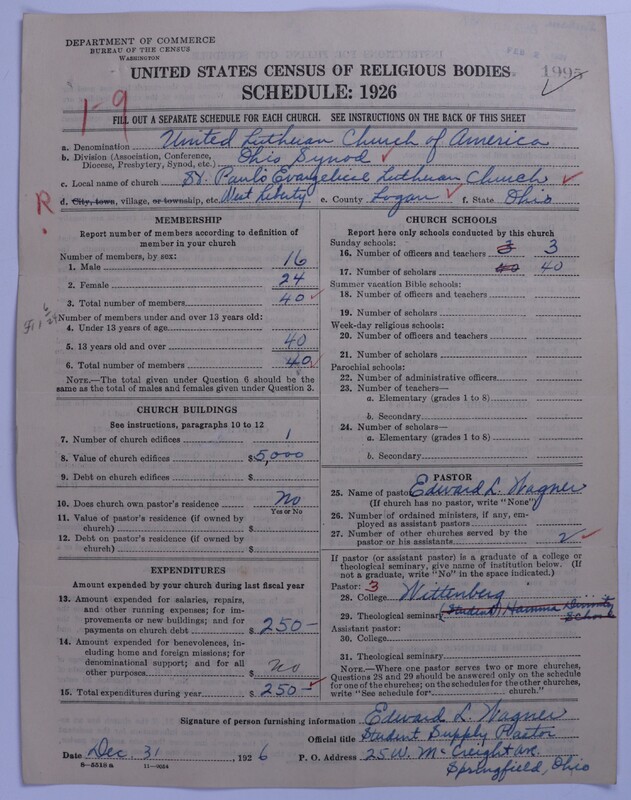 DEPARTMENT OF COMMERCE
BUREAU OF THE CENSUS
WASHINGTON
UNITED STATES CENSUS OF RELIGIOUS BODIES
1995
SCHEDULE: 1926
1-9
FILL OUT A SEPARATE SCHEDULE FOR EACH CHURCH. SEE INSTRUCTIONS ON THE BACK OF THIS SHEET
a. Denomination United Lutheran Church of America
b. Division (Association, Conference, Diocese, Presbytery, Synod, etc.) Ohio Synod ✓
c. Local name of church St. Paul's Evangelical Lutheran Church ✓
R.
d. City, town, village, or township, etc. West Liberty e. County Logan ✓ f. State Ohio
MEMBERSHIP
Report number of members according to definition of
member in your church
Number of members, by sex:
1. Male 16
2. Female 24
3. Total number of members 40 ✓
Number of members under and over 13 years old:
4. Under 13 years of age
5. 13 years old and over 40
6. Total number of members 40 ✓
NOTE.—The total given under Question 6 should be
same as the total of males and females given under Question 3.
CHURCH BUILDINGS
See instructions, paragraphs 10 to 12
7. Number of church edifices 1
8. Value of church edifices $5,000
9. Debt on church edifices $
10. Does church own pastor's residence No
Yes or No
11. Value of pastor's residence (if owned by
church) $
12. Debt on pastor's residence (if owned by
church) $
EXPENDITURES
Amount expended by your church during last fiscal year
13. Amount expended for salaries, repairs,
and other running expenses; for im-
provements or new buildings; and for
payments on church debt $ 250–
14. Amount expended for benevolences, in-
cluding home and foreign missions; for
denominational support; and for all
other purposes $ no
15. Total expenditures during year $ 250– ✓
CHURCH SCHOOLS
Report here only schools conducted by this church
Sunday schools:
16. Number of officers and teachers 3 3
17. Number of scholars 40 40
Summer vacation Bible schools:
18. Number of officers and teachers
19. Number of scholars
Week-day religious schools:
20. Number of officers and teachers
21. Number of scholars
Parochial schools:
22. Number of administrative officers
23. Number of teachers—
a. Elementary (grades 1 to 8)
b. Secondary
24. Number of scholars—
a. Elementary (grades 1 to 8)
b. Secondary
PASTOR
25. Name of pastor Edward L. Wagner
(If church has no pastor, write "None")
26. Number of ordained ministers, if any, em-
ployed as assistant pastors
27. Number of other churches served by the
pastor or his assistants 2 ✓
If pastor (or assistant pastor) is a graduate of a college or
theological seminary, give name of institution below. (If
not a graduate, write "No" in the space indicated.)
Pastor: 3
28. College Wittenberg
29. Theological seminary (Student) Hamma Divinity School
Assistant pastor:
30. College
31. Theological seminary
NOTE.—Where one pastor serves two or more churches,
Questions 28 and 29 should be answered only on the schedule
for one of the churches; on the schedules for the other churches,
write "See schedule for church."
Signature of person furnishing information Edward L. Wagner
Official title Student Supply Pastor
Date Dec. 31, 1926 P. O. Address 25 W. McCreight Ave.
Springfield, Ohio
8—5518 a 11—9024